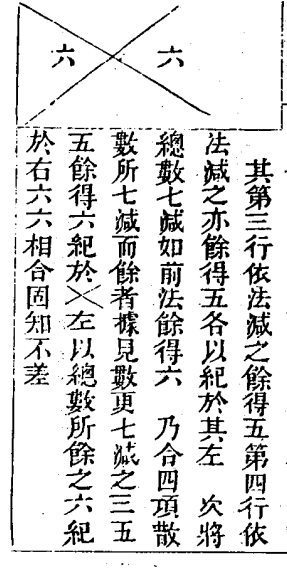 六
六
其第三行依法減之餘得五第四行依
法減之亦餘得五各以紀於其左　次將
總數七減如前法餘得六　乃合四項散
數所七減而餘者據見數更七減之三五
五餘得六紀於╳左以總數所餘之六紀
於右六六相合固知不差